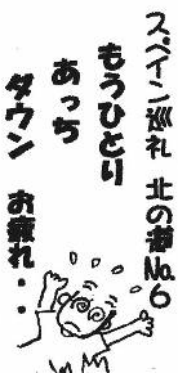 スペイン巡礼 北の道No.6
もうひとり
あっち
ダウン お疲れ・・